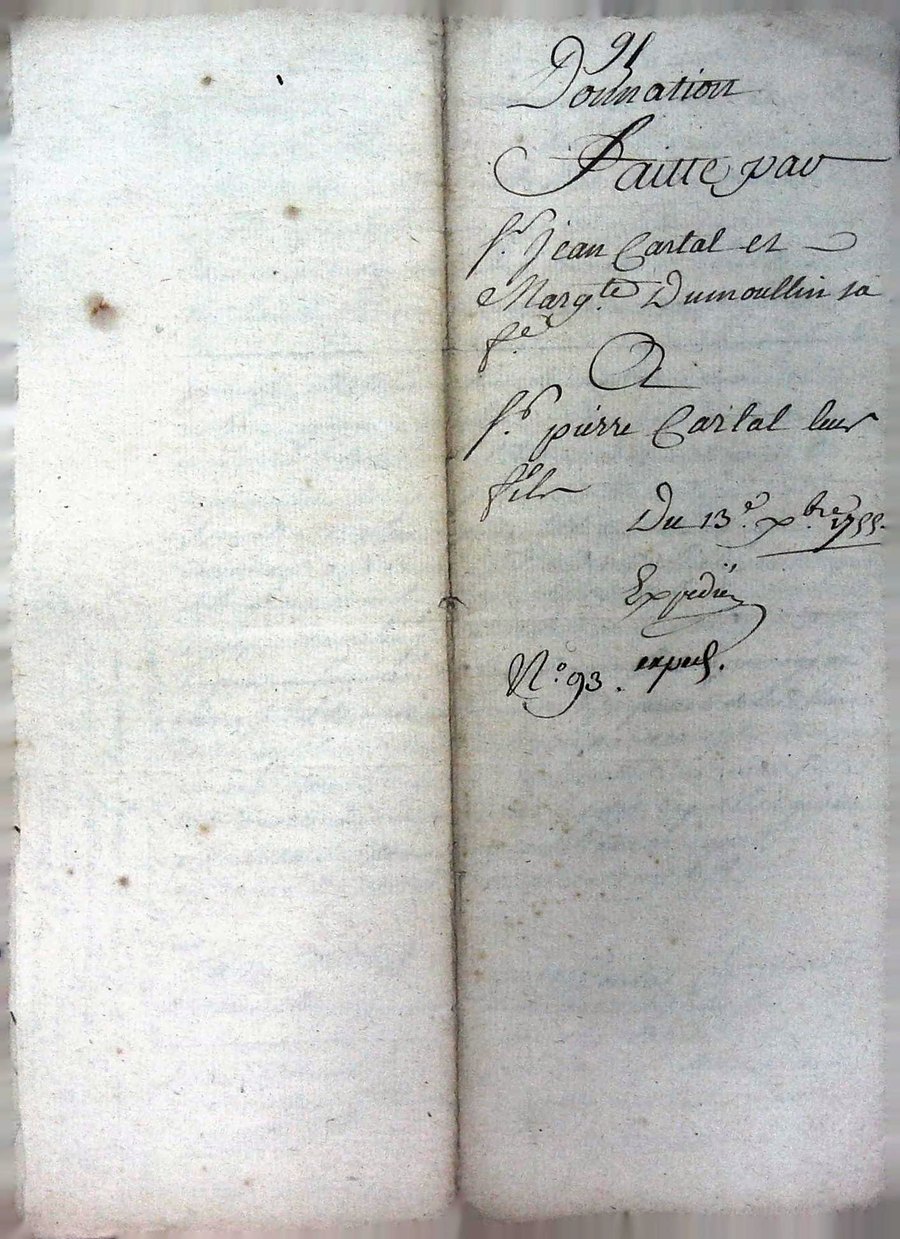 91
Donnation
Faitte par
Sr. Jean Cartal et
Margte. Dumoullin sa
fe.
A
Sr. pierre Cartal leur
fils
Du 13e. xbre. 1755.
Expediée
No. 93. exped.